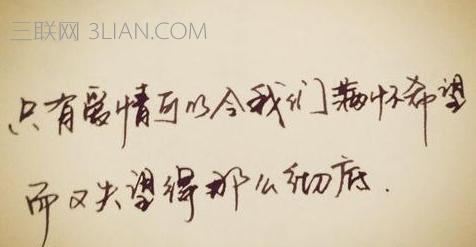 三联网 3LIAN.COM
只有爱情可以令我们满怀希望
而又失望得那么彻底.